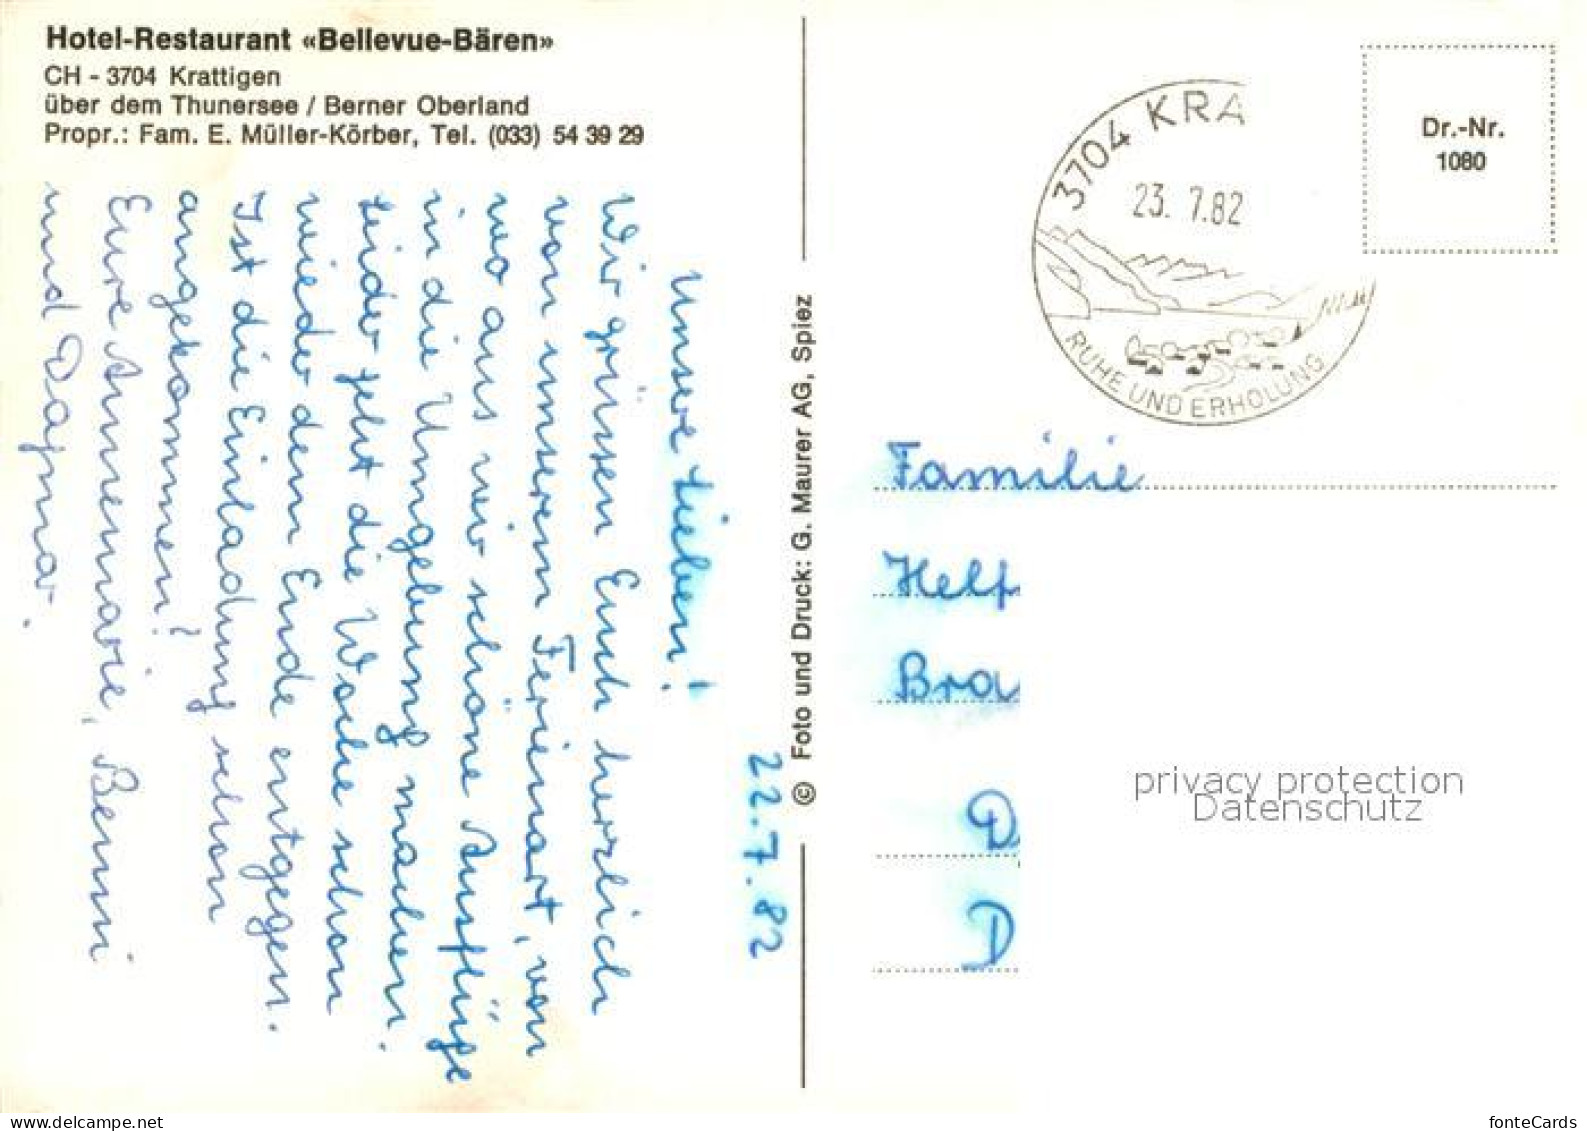 Hotel-Restaurant «Bellevue-Bären»
CH - 3704 Krattigen
über dem Thunersee / Berner Oberland
Propr.: Fam. E. Müller-Körber, Tel. (033) 54 39 29
22.7.82
Unsere Lieben!
Wir grüssen Euch herzlich
von unserem Ferienort, von
wo aus wir schöne Ausflüge
in die Umgebung machen.
Leider geht die Woche schon
wieder dem Ende entgegen.
Ist die Einladung schon
angekommen?
Eure Annemarie, Benni
und Dagmar.
© Foto und Druck: G. Maurer AG, Spiez
3704 KRA
23. 7.82
RUHE UND ERHOLUNG
Dr.-Nr.
1080
Familie
Helf
Bra
D
D
privacy protection
Datenschutz
www.delcampe.net
fonteCards